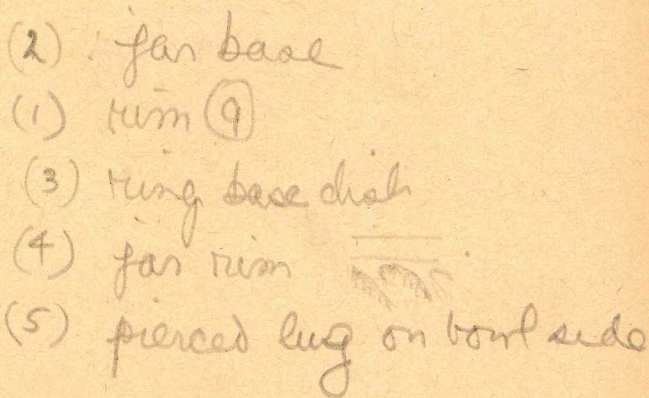 (2) jar base
(1) rim 9
(3) ring base dish
(4) jar rim
(5) pierced lug on bowl side